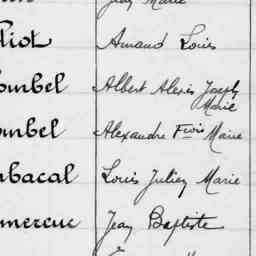 Jean Marie
liot Amand Louis
ombel Albert Alexis Joseph
Marie
ombel Alexandre Fcois Marie
abacal Louis Julien Marie
mereuc Jean Baptiste